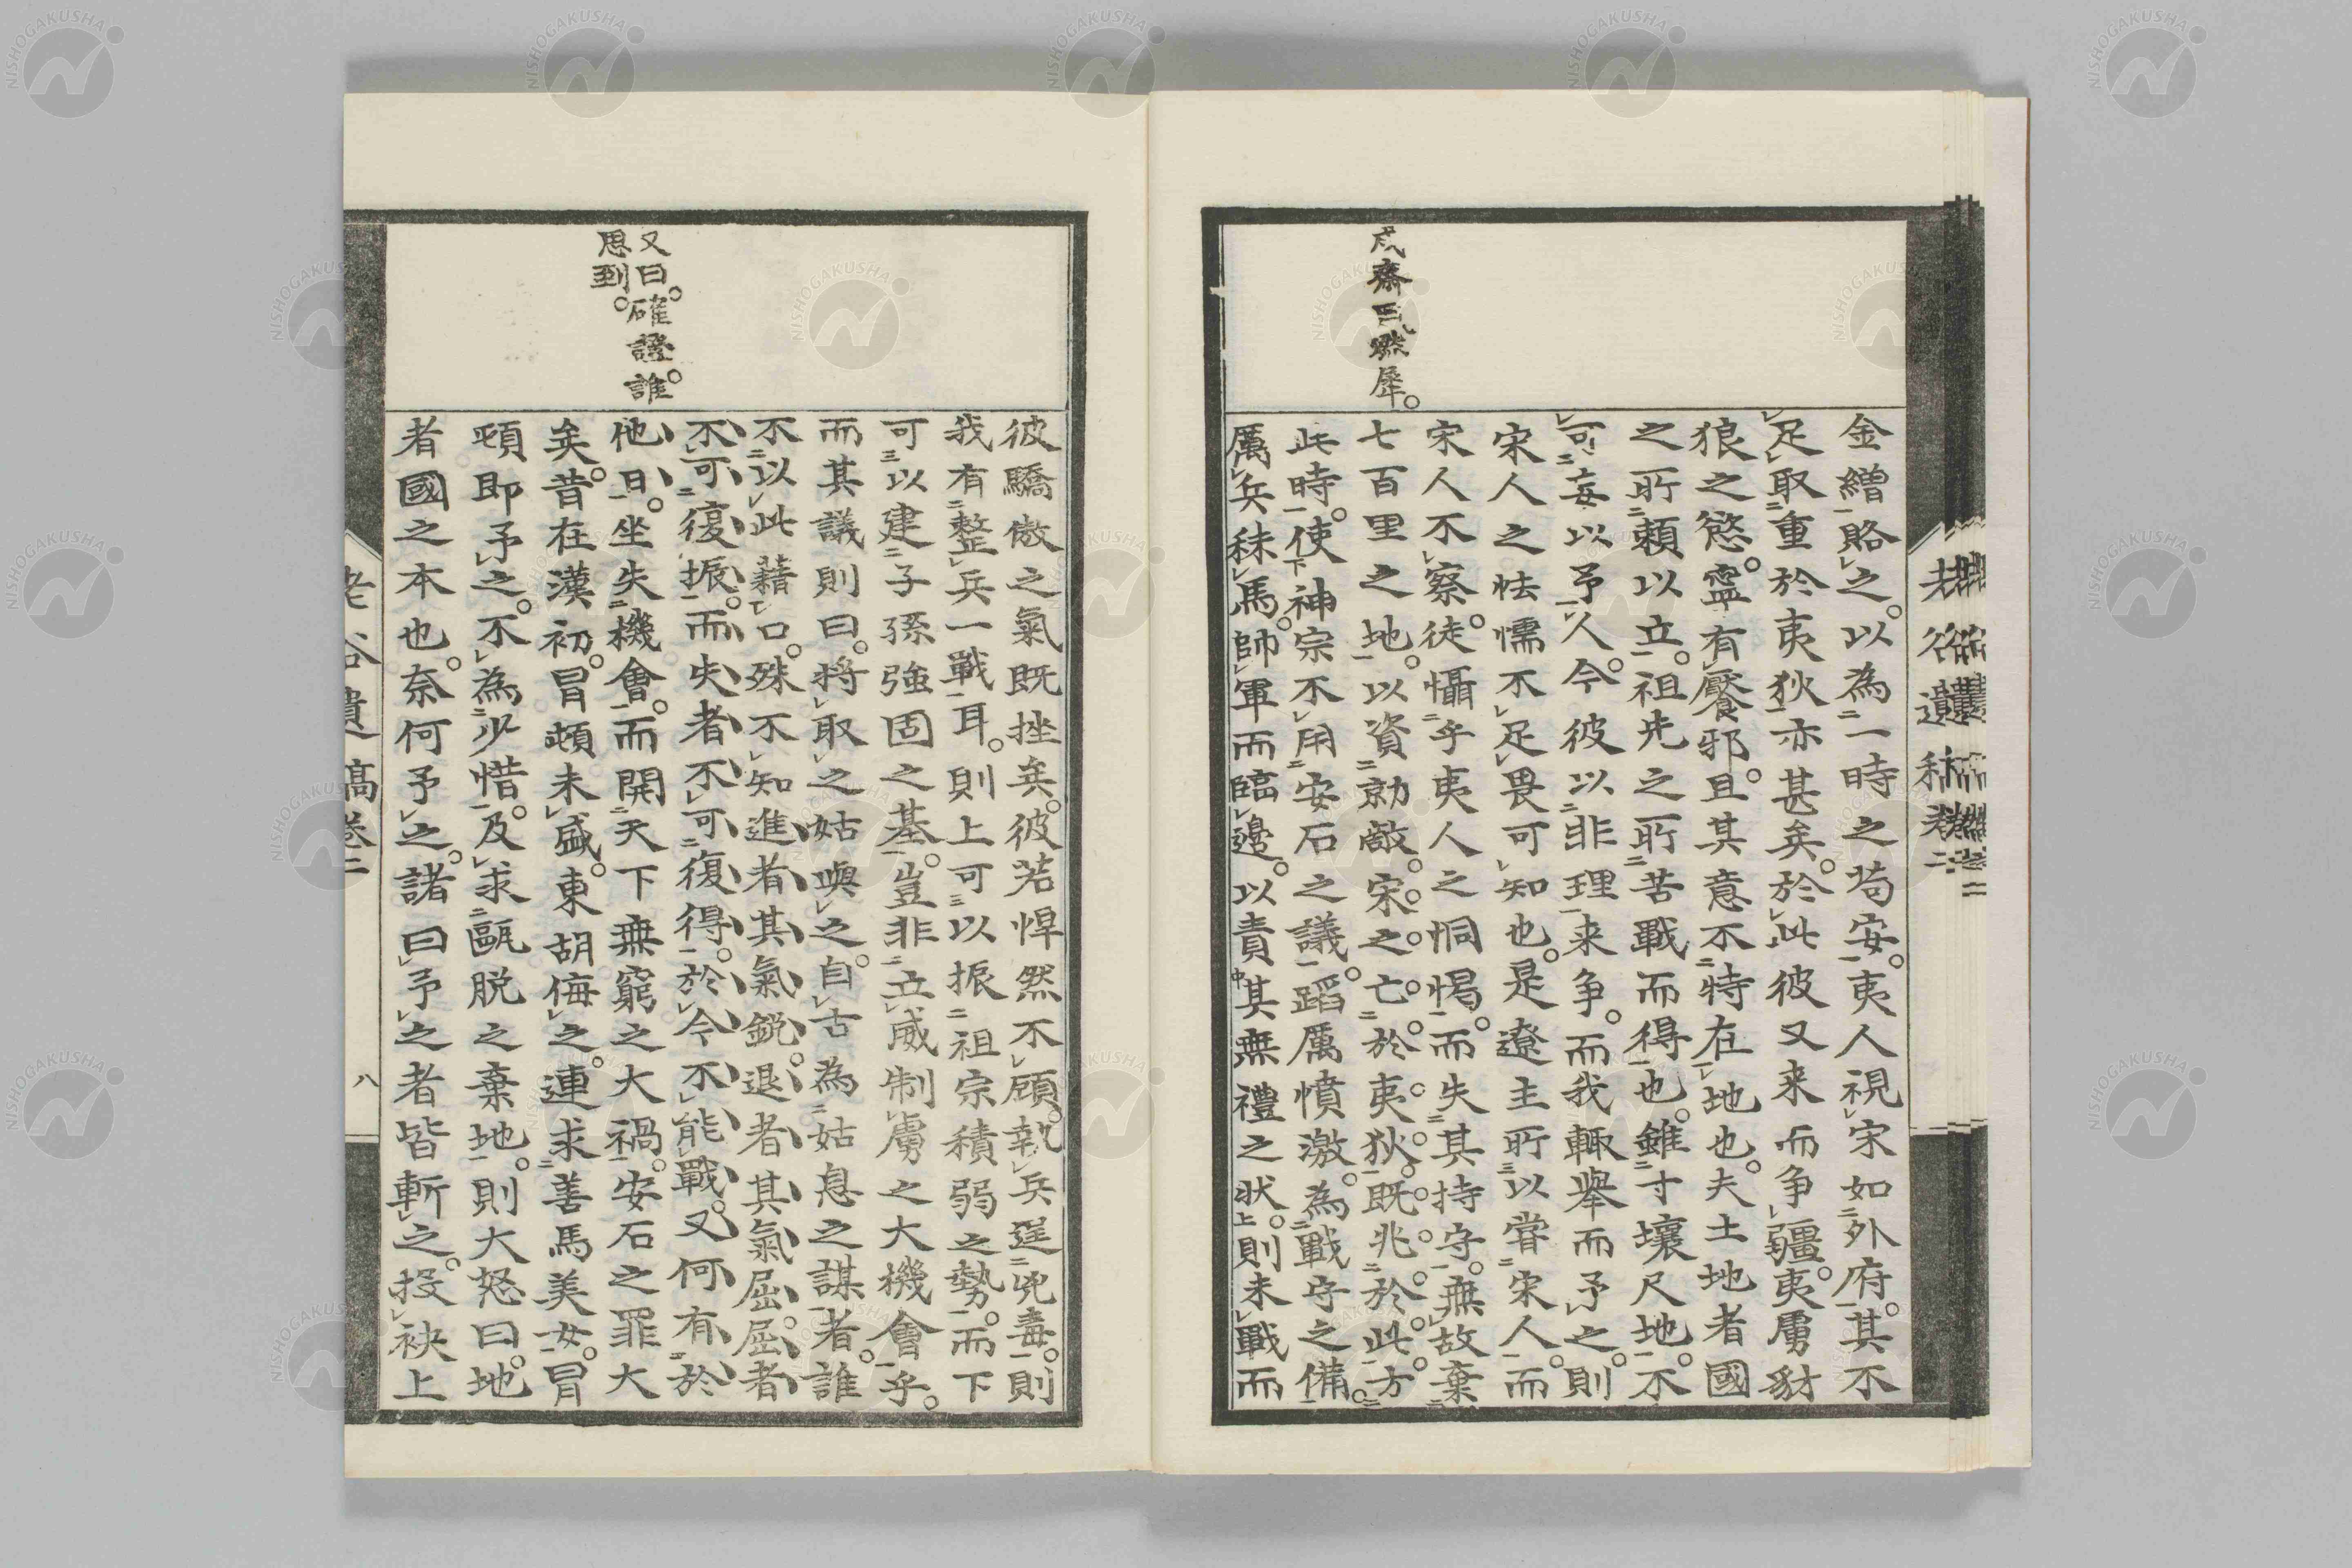 金繒賂之。以為一時之苟安。夷人視宋如外府。其不
足取重於夷狄亦甚矣。於此彼又来而争疆。夷虜豺
狼之慾。寧有饜邪。且其意不特在地也。夫土地者國
之所頼以立。祖先之所苦戰而得也。雖寸壤尺地。不
可妄以予人。今彼以非理来争。而我輙舉而予之。則
宋人之怯懦不足畏可知也。是遼主所以甞宋人。而
宋人不察。徒懾乎夷人之恫愒。而失其持守。無故棄
七百里之地。以資勍敵。宋之亡於夷狄。既兆於此。方
此時。使神宗不用安石之議。蹈厲憤激。為戰守之備。
厲兵秣馬。帥軍而臨邊。以責其無禮之狀。則未戰而
齋曰燃犀。
彼驕傲之氣既挫矣。彼若悍然不顧。執兵逞兇毒。則
我有整兵一戰耳。則上可以振祖宗積弱之勢。而下
可以建子孫強固之基。豈非立威制虜之大機會乎。
而其議則曰。將取之姑與之。自古為姑息之謀者。誰
不以此藉口。殊不知進者其氣鋭。退者其氣屈。屈者
不可復振。而失者不可復得。於今不能戰。又何有於
他日。坐失機會。而開天下無窮之大禍。安石之罪大
矣。昔在漢初。冒頓未盛。東胡侮之。連求善馬美女。冒
頓即予之。不為少惜。及求甌脱之棄地。則大怒曰。地
者國之本也。奈何予之。諸曰予之者皆斬之。投袂上
又曰。確證。誰
思到。
老谷遺稿卷二
八